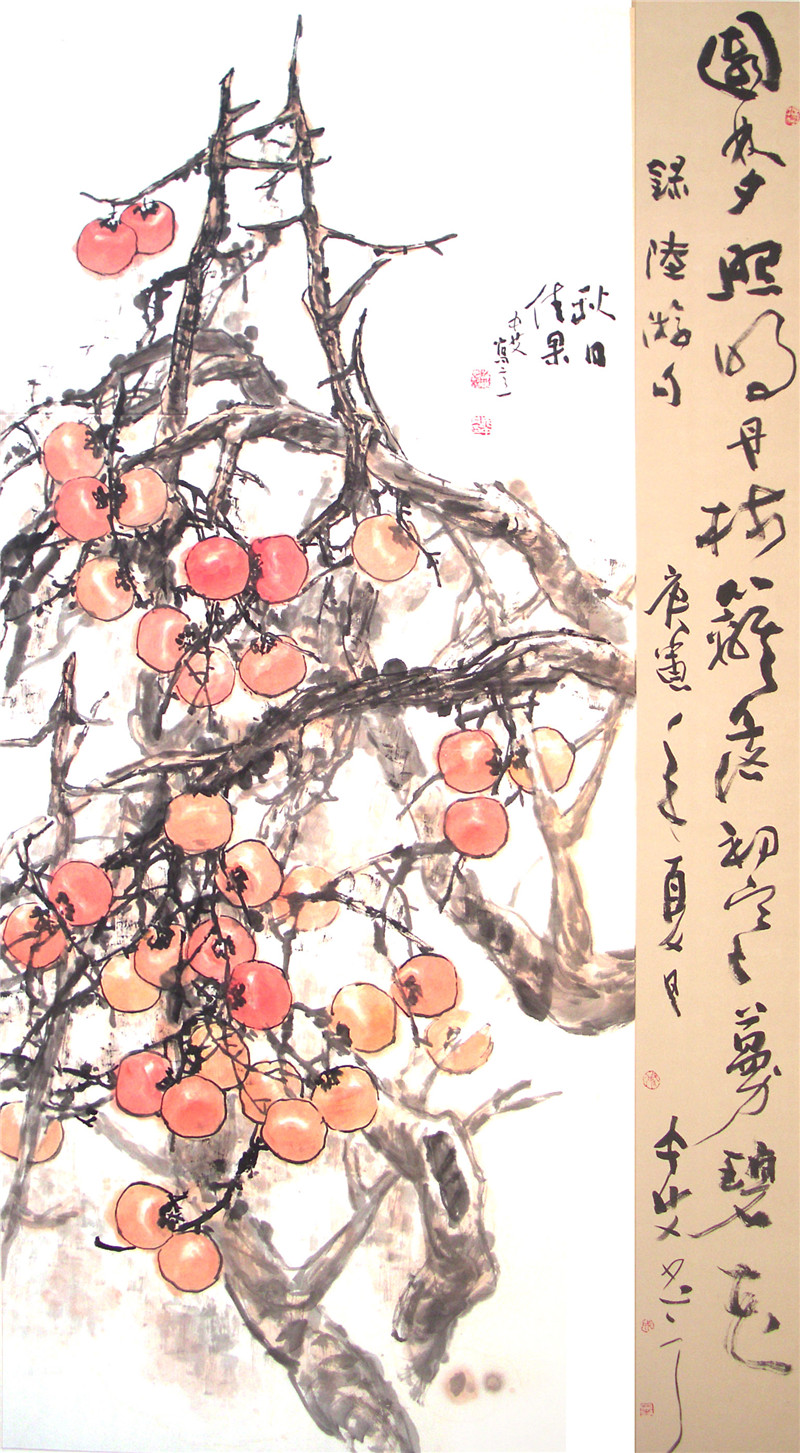 園林夕照明丹柿籬落初寒蔓碧花
錄陸游句 庚寅年夏月
秋日
佳果
寫之